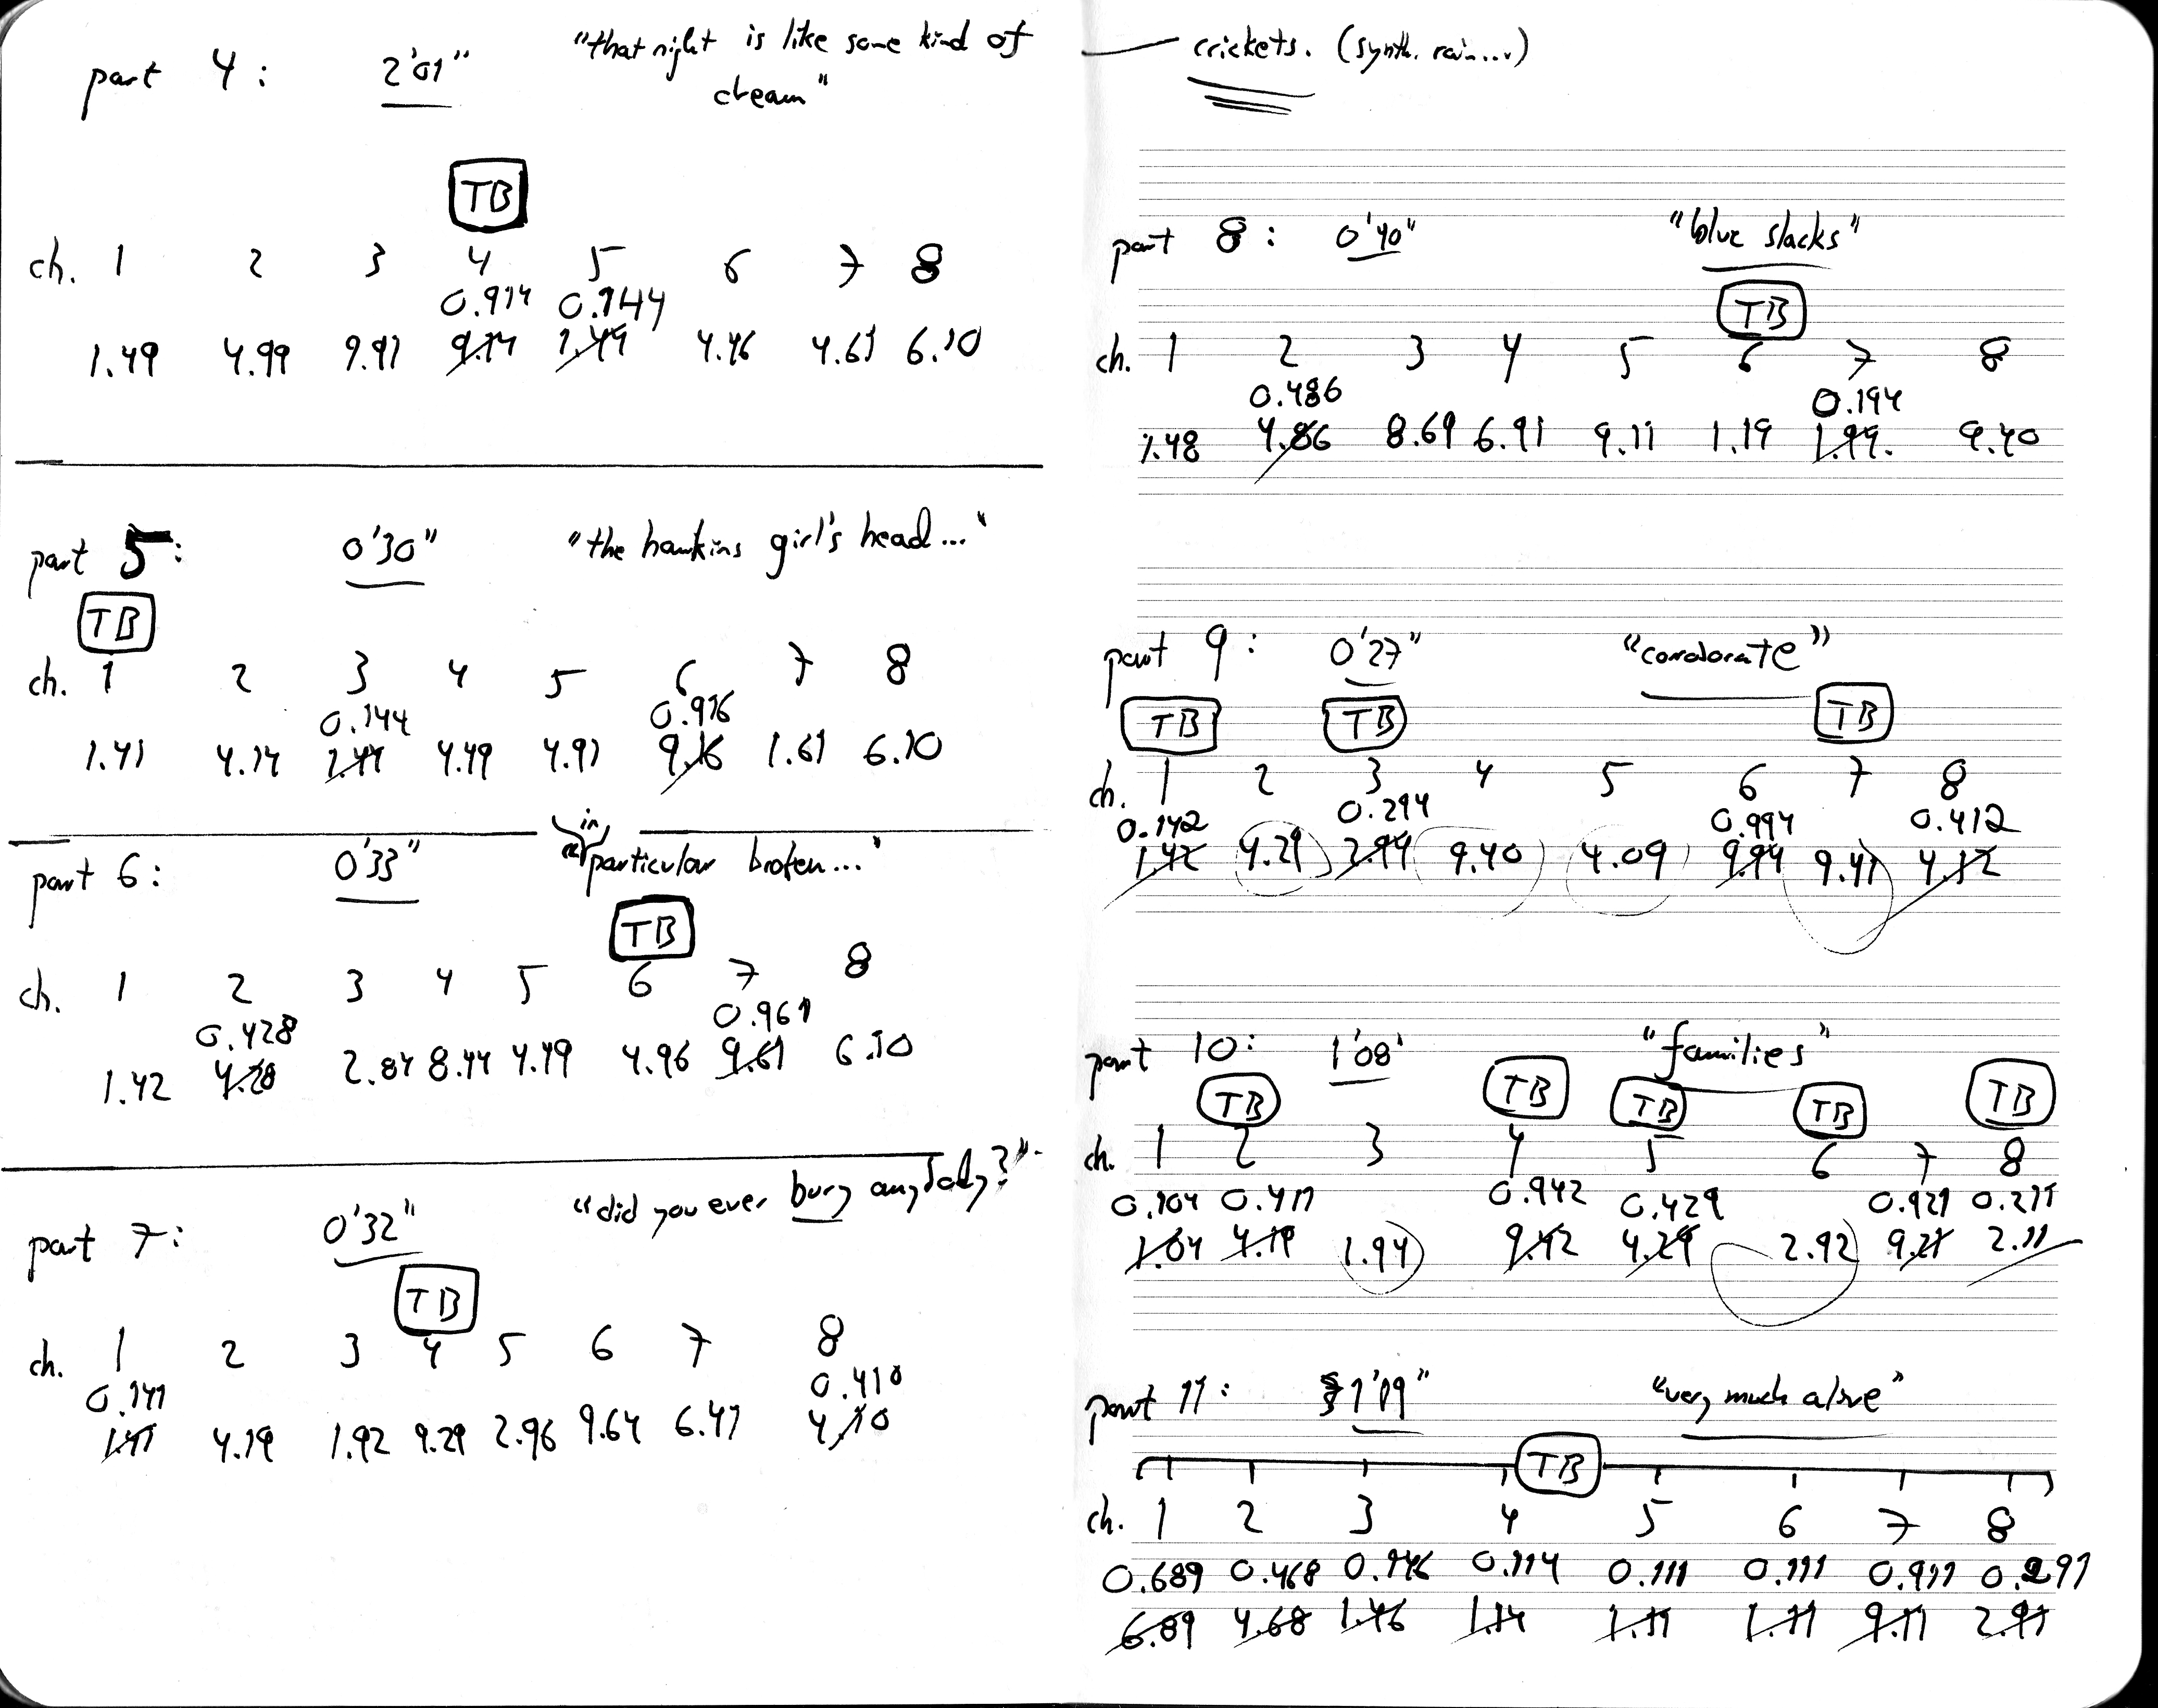 part 4: 2'01" "that night is like some kind of
dream"
TB
ch. 1 2 3 4 5 6 7 8
0.914 0.144
1.49 4.99 9.91 9.14 1.44 4.46 4.61 6.10
part 5: 0'30" "the hawkins girl's head..."
TB
ch. 1 2 3 4 5 6 7 8
0.144 0.916
1.41 4.14 1.44 4.49 4.91 9.16 1.61 6.10
in
part 6: 0'33" particular broken..."
TB
ch. 1 2 3 4 5 6 7 8
0.428 0.961
1.42 4.28 2.84 8.44 4.49 4.96 9.61 6.10
part 7: 0'32" "did you ever bury anybody?"
TB
ch. 1 2 3 4 5 6 7 8
0.141 0.410
1.41 4.19 1.92 9.29 2.96 9.64 6.41 4.10
crickets. (synth. rain....)
part 8: 0'40" "blue slacks"
TB
ch. 1 2 3 4 5 6 7 8
0.486 0.194
1.48 4.86 8.69 6.91 9.11 1.19 1.94. 9.40
part 9: 0'27"
TB TB TB
ch. 1 2 3 4 5 6 7 8
0.142 0.294 0.994 0.412
1.42 4.29 2.94 9.40 4.09 9.94 9.41 4.12
part 10: 1'08' "families"
TB TB TB TB TB
ch. 1 2 3 4 5 6 7 8
0.104 0.419 0.942 0.429 0.921 0.211
1.04 4.19 1.94 9.42 4.29 2.92 9.21 2.11
part 11: 1'19" "very much alive"
TB
ch. 1 2 3 4 5 6 7 8
0.689 0.468 0.146 0.114 0.111 0.111 0.911 0.291
6.89 4.68 1.46 1.14 1.11 1.11 9.11 2.91